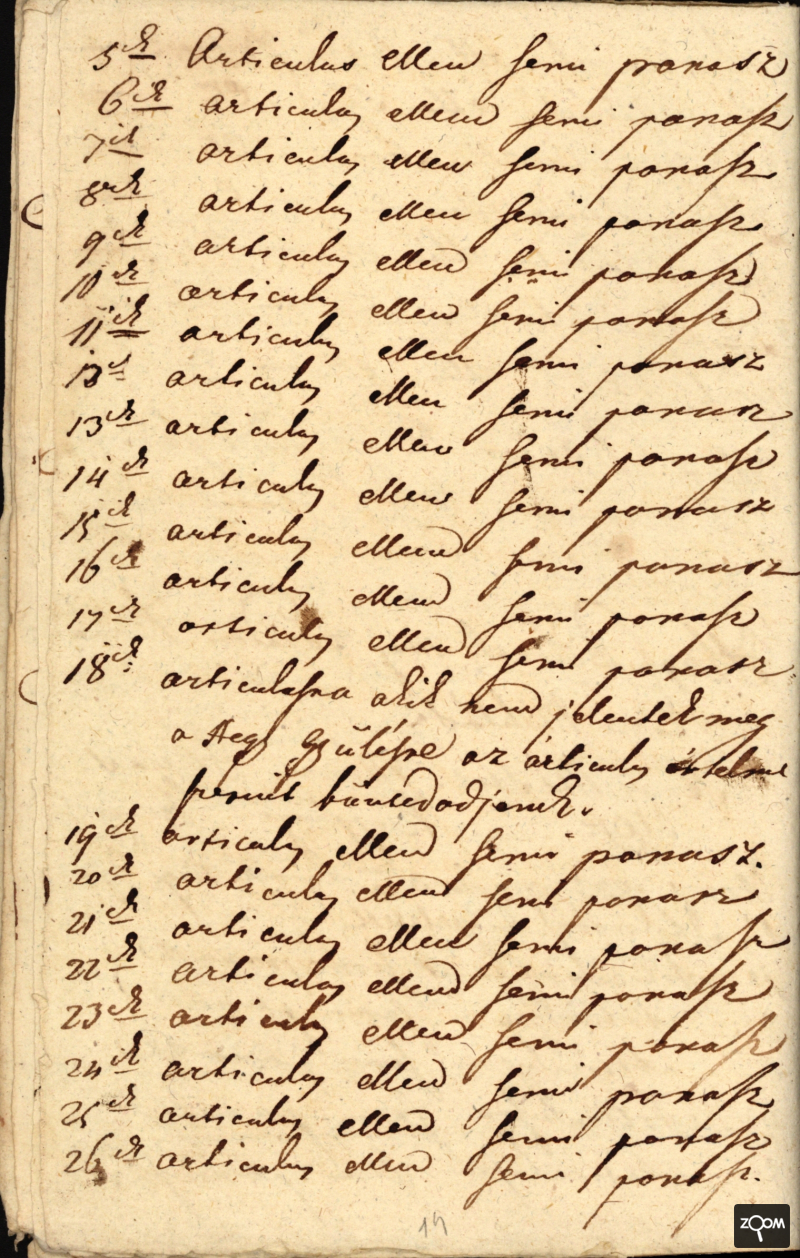 5ik Articulus ellen semi panasz
6ik articulus ellen semi panasz
7ik articulus ellen semi panasz
8ik articulus ellen semi panasz
9ik articulus ellen semi panasz
10ik articulus ellen semi panasz
11ik articulus ellen semi panasz
12ik articulus ellen semi panasz
13ik articulus ellen semi panasz
14ik articulus ellen semi panasz
15ik articulus ellen semi panasz
16ik articulus ellen semi panasz
17ik articulus ellen semi panasz
18ik articulusra akik nem jelentek meg
a gyülésre az articulus értelme
szerint büntedodjenek.
19ik articulus ellen semi panasz.
20ik articulus ellen semi panasz
21ik articulus ellen semi panasz
22ik articulus ellen semi panasz
23ik articulus ellen semi panasz
24ik articulus ellen semi panasz
25ik articulus ellen semi panasz
26ik articulus ellen semi panasz.
ZOOM